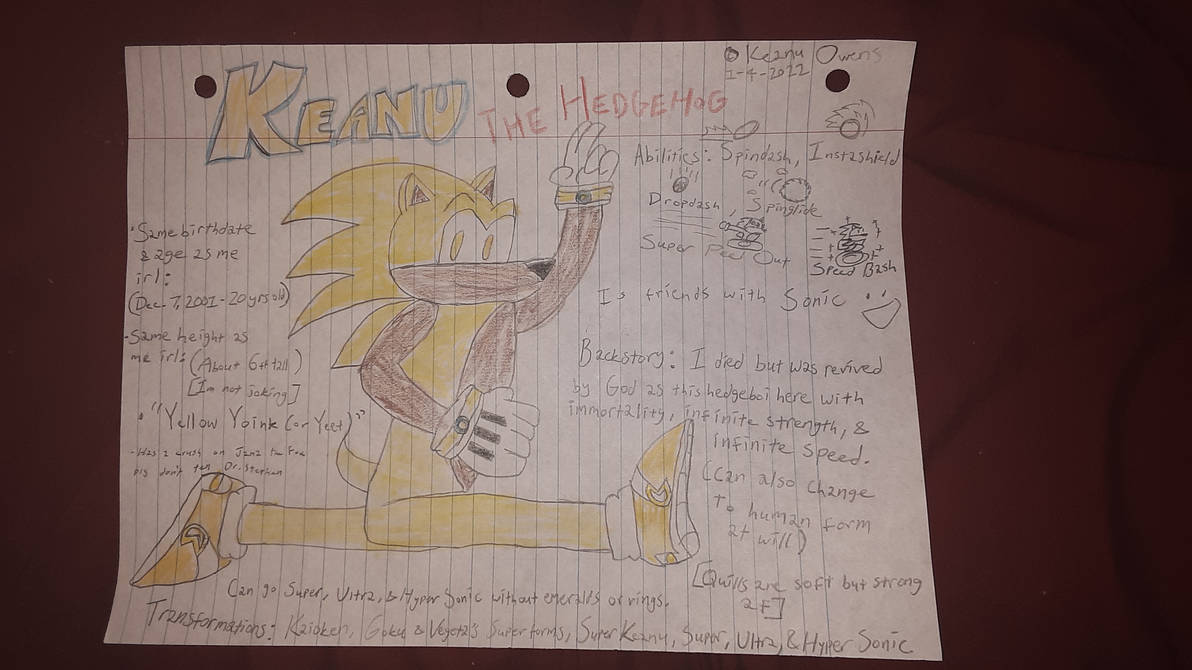 © Keanu Owens
1-4-2022
KEANU THE HEDGEHOG
Abilities: Spindash, Instashield
Dropdash, Spinglide
Super Peel Out
Speed Bash
Is friends with Sonic
• Same birthdate
& age as me
irl:
(Dec. 7, 2001 - 20 yrs old)
- Same height as
me irl: (About 6ft tall)
[Im not joking]
• "Yellow Yoink (or Yeet)"
- Has a crush on Jana the Fox
pls don't tell Dr. Stephan
Backstory: I died but was revived
by God as this hedgeboi here with
immortality, infinite strength, &
infinite speed.
(Can also change
to human form
at will)
[Quills are soft but strong
af]
Can go Super, Ultra, & Hyper Sonic without emeralds or rings.
Transformations: Kaioken, Goku & Vegeta's Super forms, Super Keanu, Super, Ultra, & Hyper Sonic